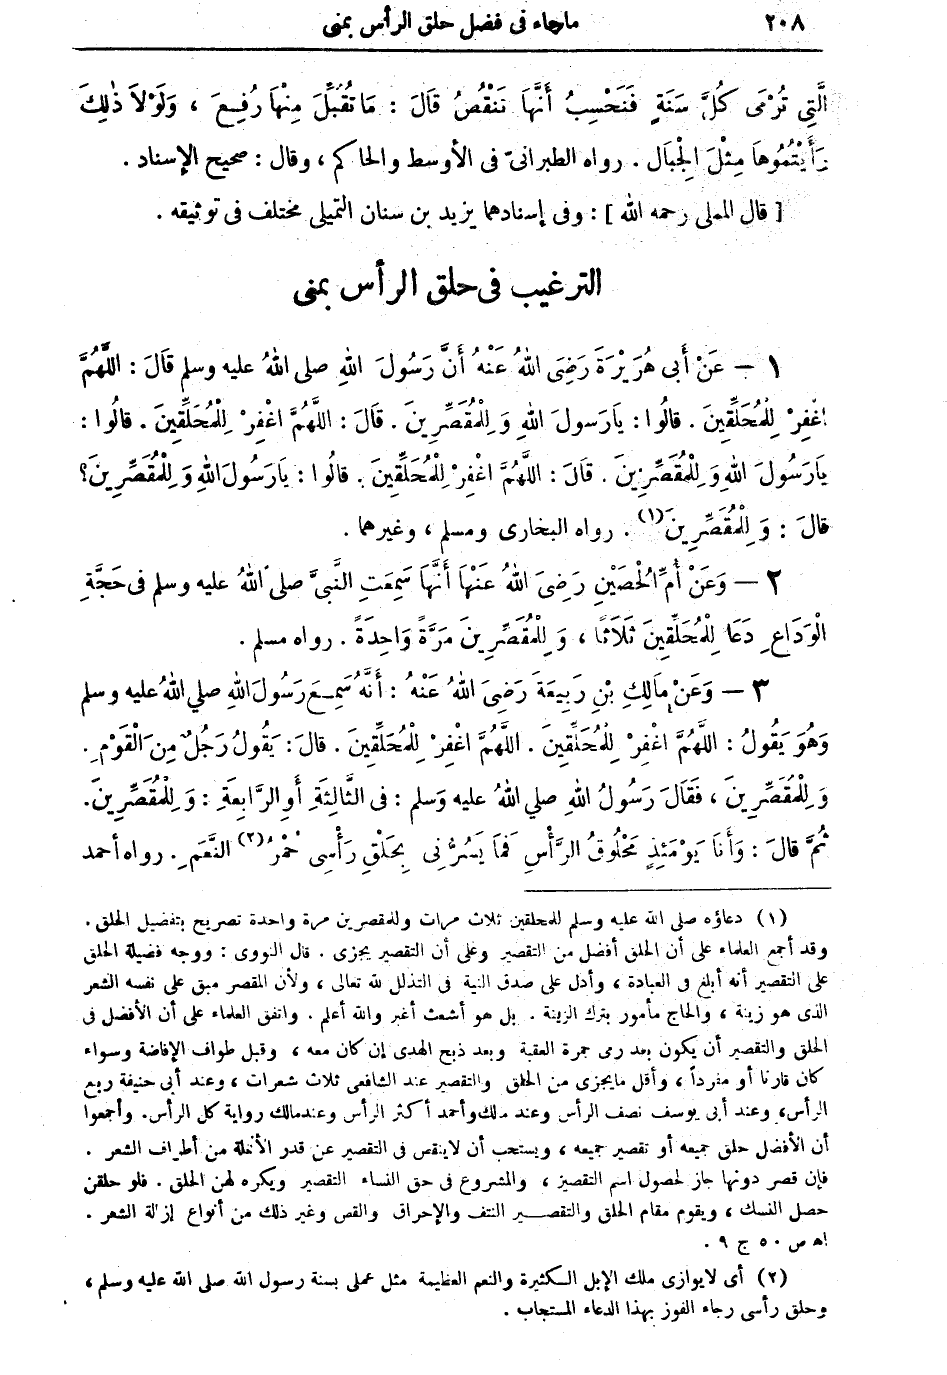 ٢٠٨
ماجاء فى فضل حلق الرأس بمنى
الَّتِى تُرْمَى كُلَّ سَنَةٍ فَنَحْسِبُ أَنَّهَا تَنْقُصُ قَالَ : مَا تُقُبِّلَ مِنْهَا رُفِعَ ، وَلَوْلاَ ذٰلِكَ
رَأَيْتُمُوهَا مِثْلَ الْجِبَالِ . رواه الطبرانىّ فى الأوسط والحاكم ، وقال : صحيح الإسناد .
[ قال المملى رحمه الله ] : وفى إسنادهما يزيد بن سنان التميلى مختلف فى توثيقه .
الترغيب فى حلق الرأس بمنى
١ — عَنْ أَبِى هُرَيْرَةَ رَضِىَ اللهُ عَنْهُ أَنَّ رَسُولَ اللهِ صلى اللهُ عليه وسلم قَالَ : اللَّهُمَّ
اغْفِرْ لِلْمُحَلِّقِينَ . قالُوا : يَارَسولَ اللهِ وَلِلْمُقَصِّرِينَ . قَالَ : اللَّهُمَّ اغْفِرْ لِلْمُحَلِّقِينَ . قالُوا :
يَارَسُولَ اللهِ وَلِلْمُقَصِّرِينَ . قَالَ : اللَّهُمَّ اغْفِرْ لِلْمُحَلِّقِينَ . قالُوا : يَارَسُولَ اللهِ وَلِلْمُقَصِّرِينَ؟
قالَ : وَلِلْمُقَصِّرِينَ(١) . رواه البخارى ومسلم ، وغيرهما .
٢ — وَعَنْ أُمِّ الْحُصَيْنِ رَضِىَ اللهُ عَنْهَا أَنَّهَا سَمِعَتِ النَّبِىَّ صلى اللهُ عليه وسلم فى حَجَّةِ
الْوَدَاعِ دَعَا لِلْمُحَلِّقِينَ ثَلاَثًا ، وَلِلْمُقَصِّرِينَ مَرَّةً وَاحِدَةً . رواه مسلم .
٣ — وَعَنْ مَالِكِ بْنِ رَبِيعَةَ رَضِىَ اللهُ عَنْهُ : أَنَّهُ سَمِعَ رَسُولَ اللهِ صلي اللهُ عليه وسلم
وَهُوَ يَقُولُ : اللَّهُمَّ اغْفِرْ لِلْمُحَلِّقِينَ . اللَّهُمَّ اغْفِرْ لِلْمُحَلِّقِينَ . قالَ : يَقُولُ رَجُلٌ مِنَ الْقَوْمِ .
وَلِلْمُقَصِّرِينَ ، فَقَالَ رَسُولُ اللهِ صلي اللهُ عليه وسلم : فى الثَّالِثَةِ أَوِ الرَّابِعَةِ : وَلِلْمُقَصِّرِينَ.
ثُمَّ قالَ : وَأَنَا يَوْمَئِذٍ مَحْلُوقُ الرَّأْسِ فَمَا يَسُرُّنِى بِحَلْقِ رَأْسِى حُمْرُ(٢) النَّعَمِ . رواه أحمد
(١) دعاؤه صلى الله عليه وسلم للمحلقين ثلاث مرات وللمقصرين مرة واحدة تصريح بتفضيل الحلق .
وقد أجمع العلماء على أن الحلق أفضل من التقصير وعلى أن التقصير يجزى . قال النووى : ووجه فضيلة الحلق
على التقصير أنه أبلغ فى العبادة ، وأدل على صدق النية فى التذلل لله تعالى ، ولأن المقصر مبق على نفسه الشعر
الذى هو زينة ، والحاج مأمور بترك الزينة . بل هو أشعث أغبر والله أعلم . واتفق العلماء على أن الأفضل فى
الحلق والتقصير أن يكون بعد رمى جمرة العقبة وبعد ذبح الهدى إن كان معه ، وقبل طواف الإفاضة وسواء
كان قارنا أو مفرداً ، وأقل مايجزى من الحلق والتقصير عند الشافعى ثلاث شعرات ، وعند أبى حنيفة ربع
الرأس، وعند أبى يوسف نصف الرأس وعند مالك وأحمد أكثر الرأس وعندمالك رواية كل الرأس. وأجمعوا
أن الأفضل حلق جميعه أو تقصير جميعه ، ويستحب أن لاينقص فى التقصير عن قدر الأنملة من أطراف الشعر .
فإن قصر دونها جاز لحصول اسم التقصير ، والمشروع فى حق النساء التقصير ويكره لهن الحلق . فلو حلقن
حصل النسك ، ويقوم مقام الحلق والتقصير النتف والإحراق والقص وغير ذلك من أنواع إزالة الشعر .
اه ص ٥٠ ج ٩ .
(٢) أى لايوازى ملك الإبل الكثيرة والنعم العظيمة مثل عملى بسنة رسول الله صلى الله عليه وسلم ،
وحلق رأسى رجاء الفوز بهذا الدعاء المستجاب .